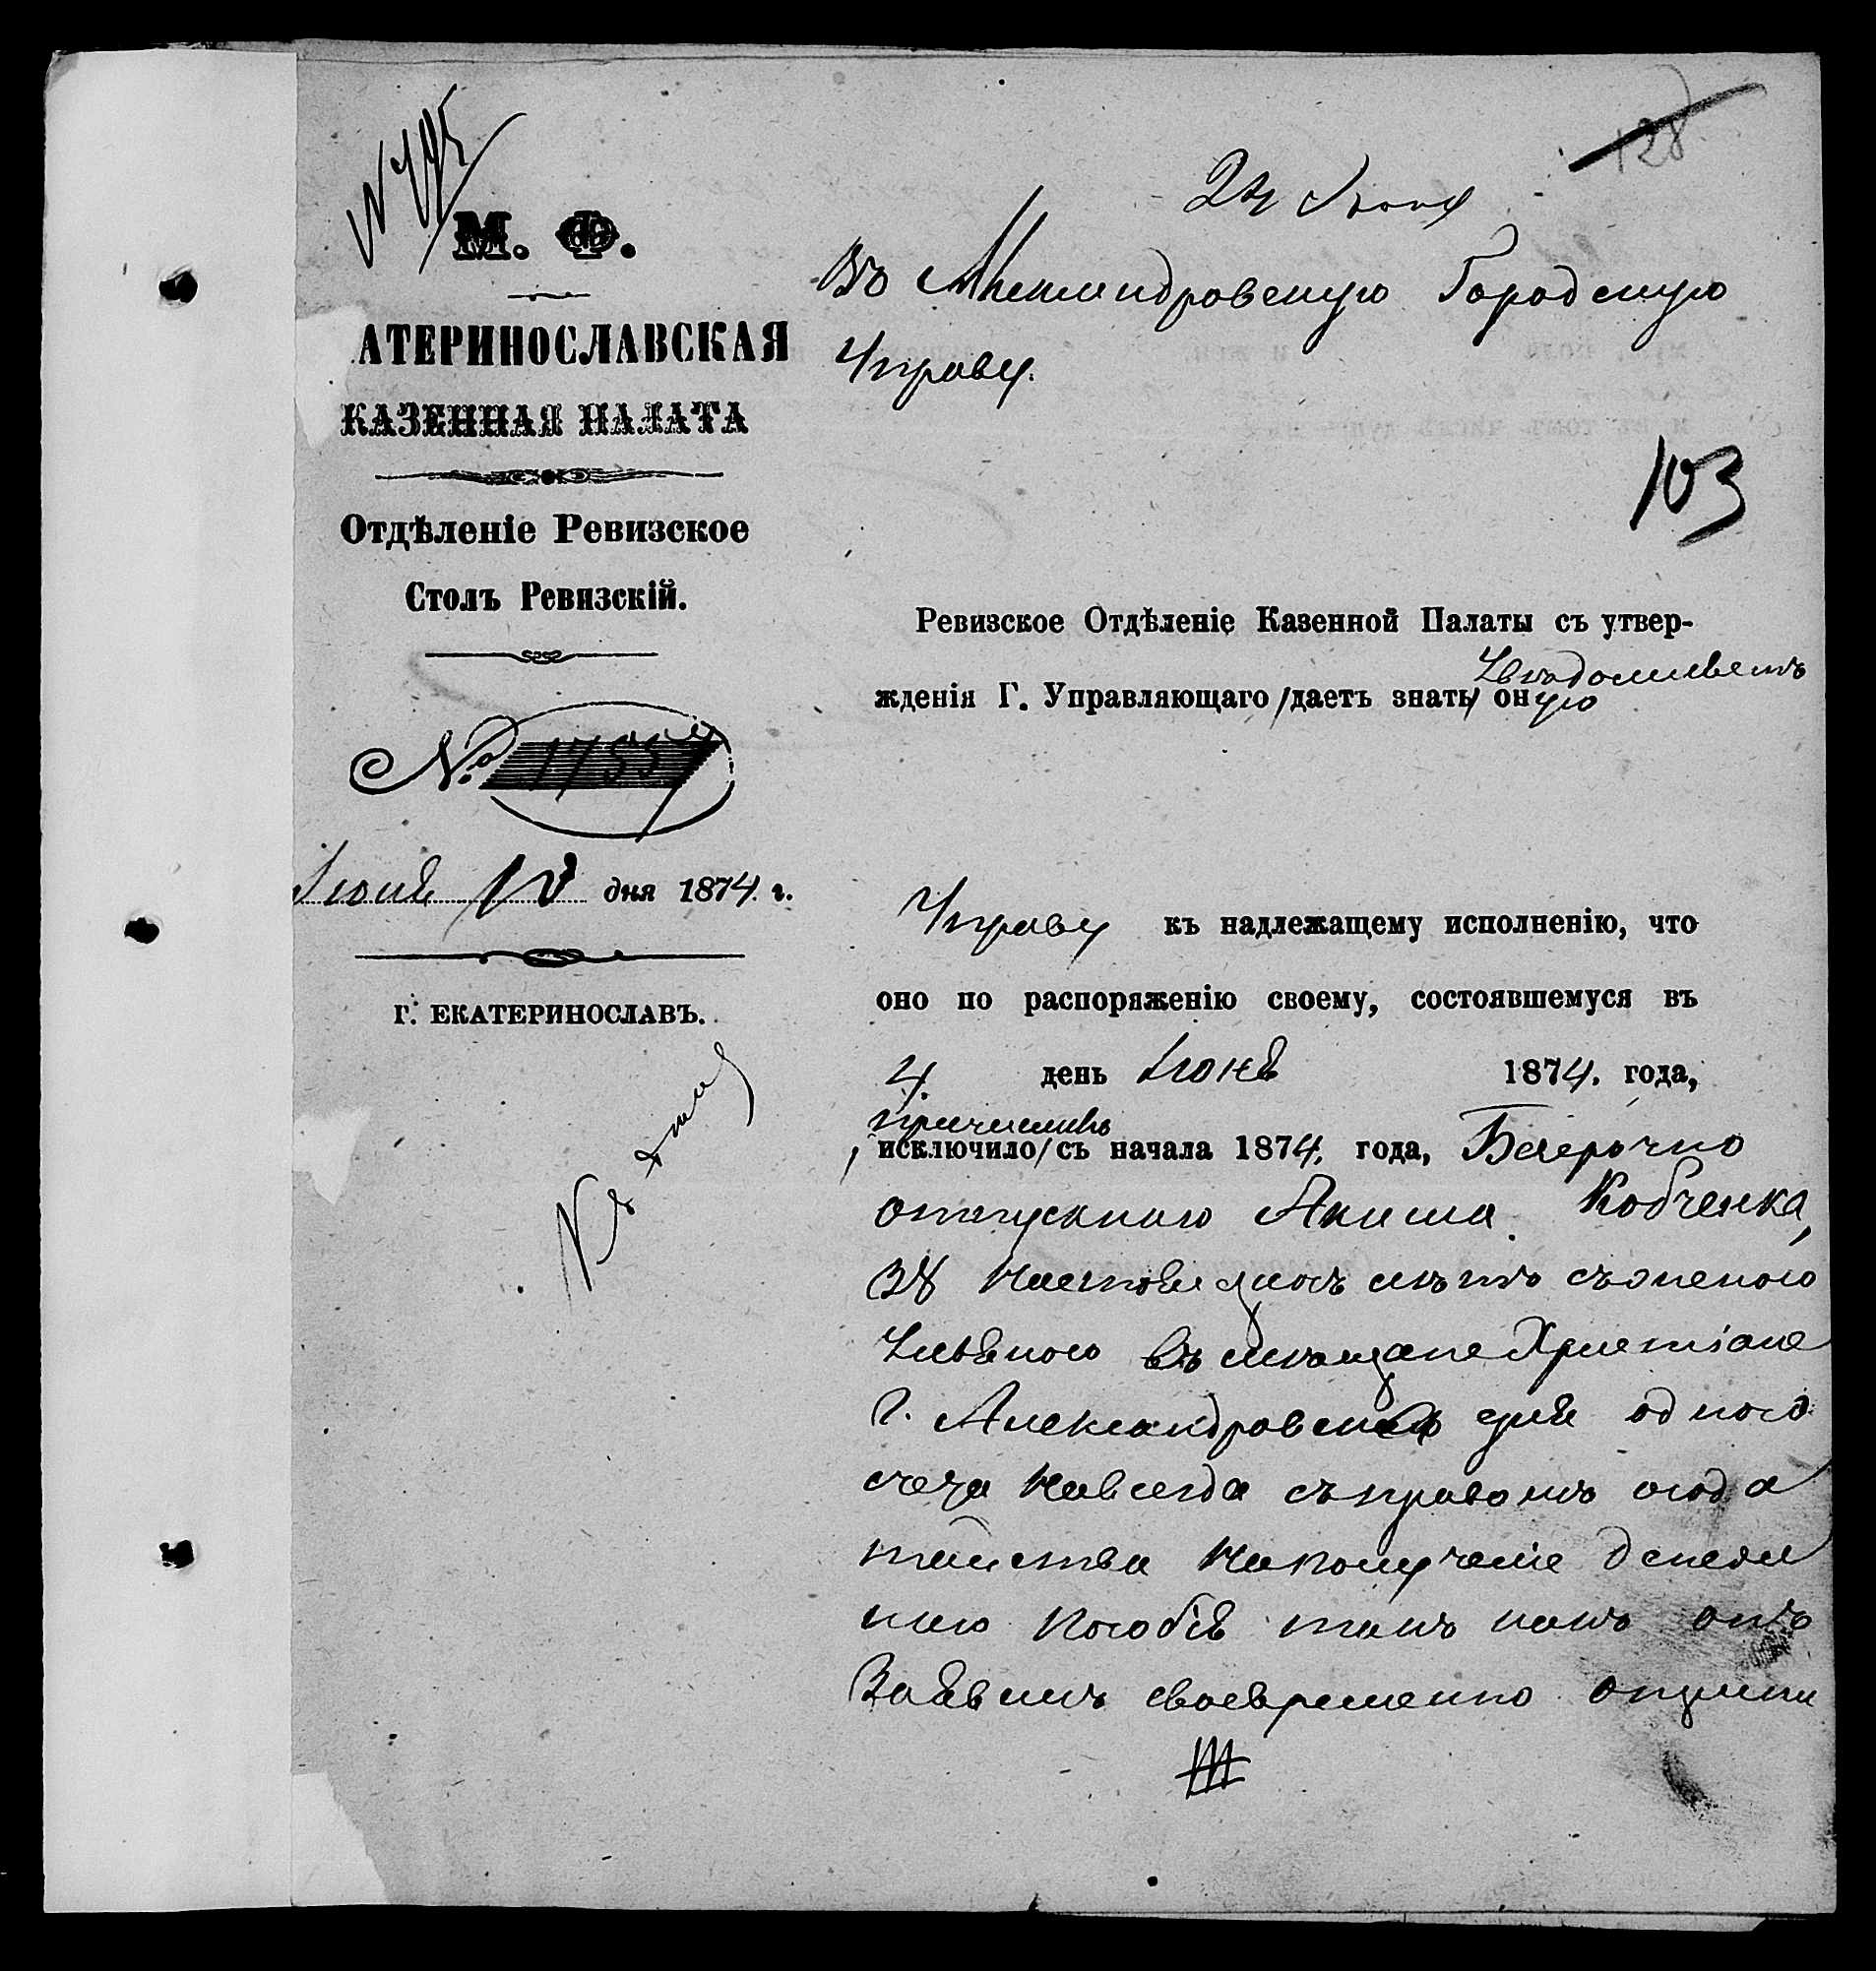 М. Ф.
АТЕРИНОСЛАВСКАЯ
КАЗЕННАЯ ПАЛАТА
Отдѣленіе Ревизское
Столъ Ревизскій.
№
Іюня 10 дня 1874. г.
Г. ЕКАТЕРИНОСЛАВЪ.
128
24 Іюня
Въ Александровскую Городскую
Управу.
103
Ревизское Отдѣленіе Казенной Палаты съ утвер-
Увѣдомляетъ
жденія Г. Управляющаго /даетъ знать/ оную
Управу къ надлежащему исполненію, что
оно по распоряженію своему, состоявшемуся въ
4. день Іюня 1874. года,
причисливъ
исключило/ съ начала 1874. года, Безсрочно
отпускнаго Акима Кобченка,
38 лѣтъ съ
въ мѣщане Христіане
г. Александровска для одного
счета навсегда съ правомъ хода
тайства на полученіе денежн
наго пособія такъ какъ онъ
Заявилъ своевременно